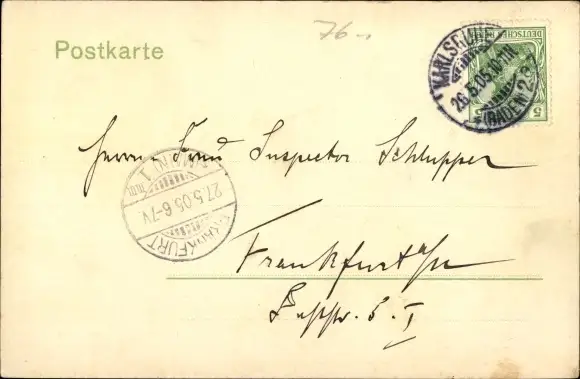 76.-
Postkarte
DEUTSCHES REICH
5
KARLSRUHE
26.5.05.10-11N.
(BADEN) 2
Herrn Frau Inspector Schlupper
27.5.05.6-7V.
FRANKFURT
(MAIN) 1
Frankfurt a/m
5. I